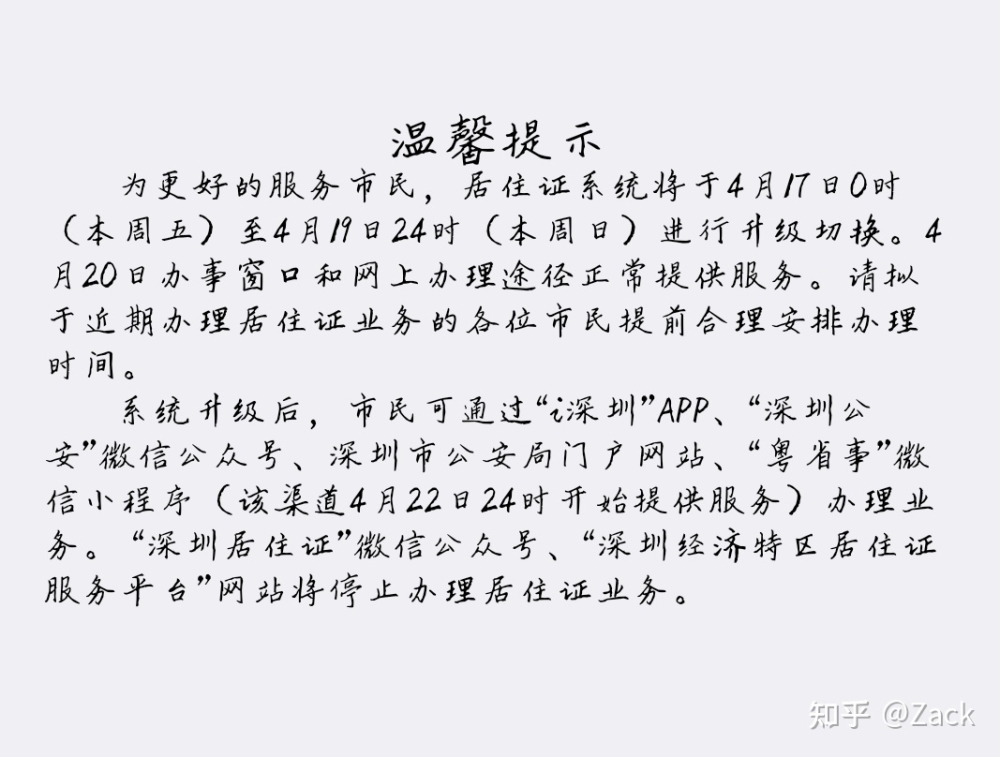 温馨提示
为更好的服务市民，居住证系统将于4月17日0时
（本周五）至4月19日24时（本周日）进行升级切换。4
月20日办事窗口和网上办理途径正常提供服务。请拟
于近期办理居住证业务的各位市民提前合理安排办理
时间。
系统升级后，市民可通过“i深圳”APP、“深圳公
安”微信公众号、深圳市公安局门户网站、“粤省事”微
信小程序（该渠道4月22日24时开始提供服务）办理业
务。“深圳居住证”微信公众号、“深圳经济特区居住证
服务平台”网站将停止办理居住证业务。
知乎 @Zack